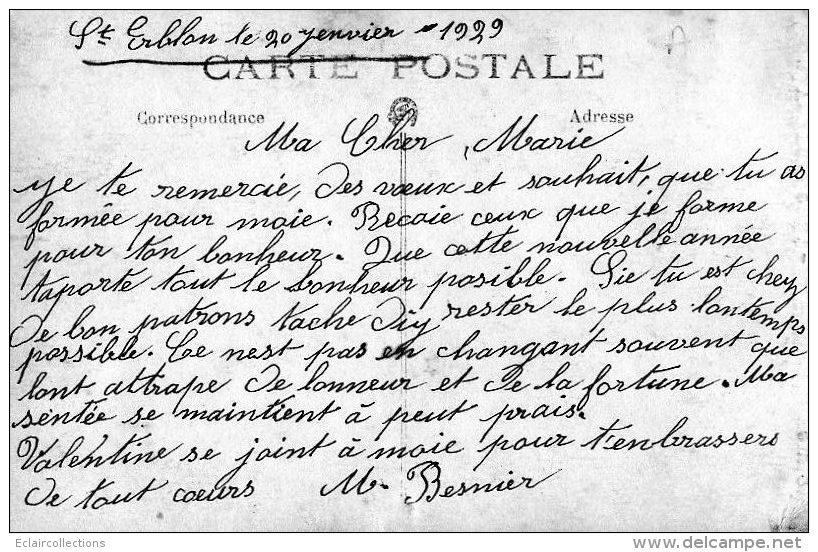 St Erblon le 20 jenvier - 1929
CARTE POSTALE
Correspondance
Adresse
Ma Cher Marie
Je te remercie, des vœux et souhait, que tu as
formée pour moie. Recoie ceux que je forme
pour ton bonheur. Que cette nouvelle année
taporte tout le bonheur posible. Sie tu est chez
de bon patrons tache diy rester le plus lontemps
possible. Ce nest pas en changant souvent que
lont attrape de lonneur et de la fortune. Ma
sentée se maintient à peut prais.
Valentine se joint à moie pour t'enbrassers
de tout cœurs M. Besnier
Eclaircollections
delcampe.net